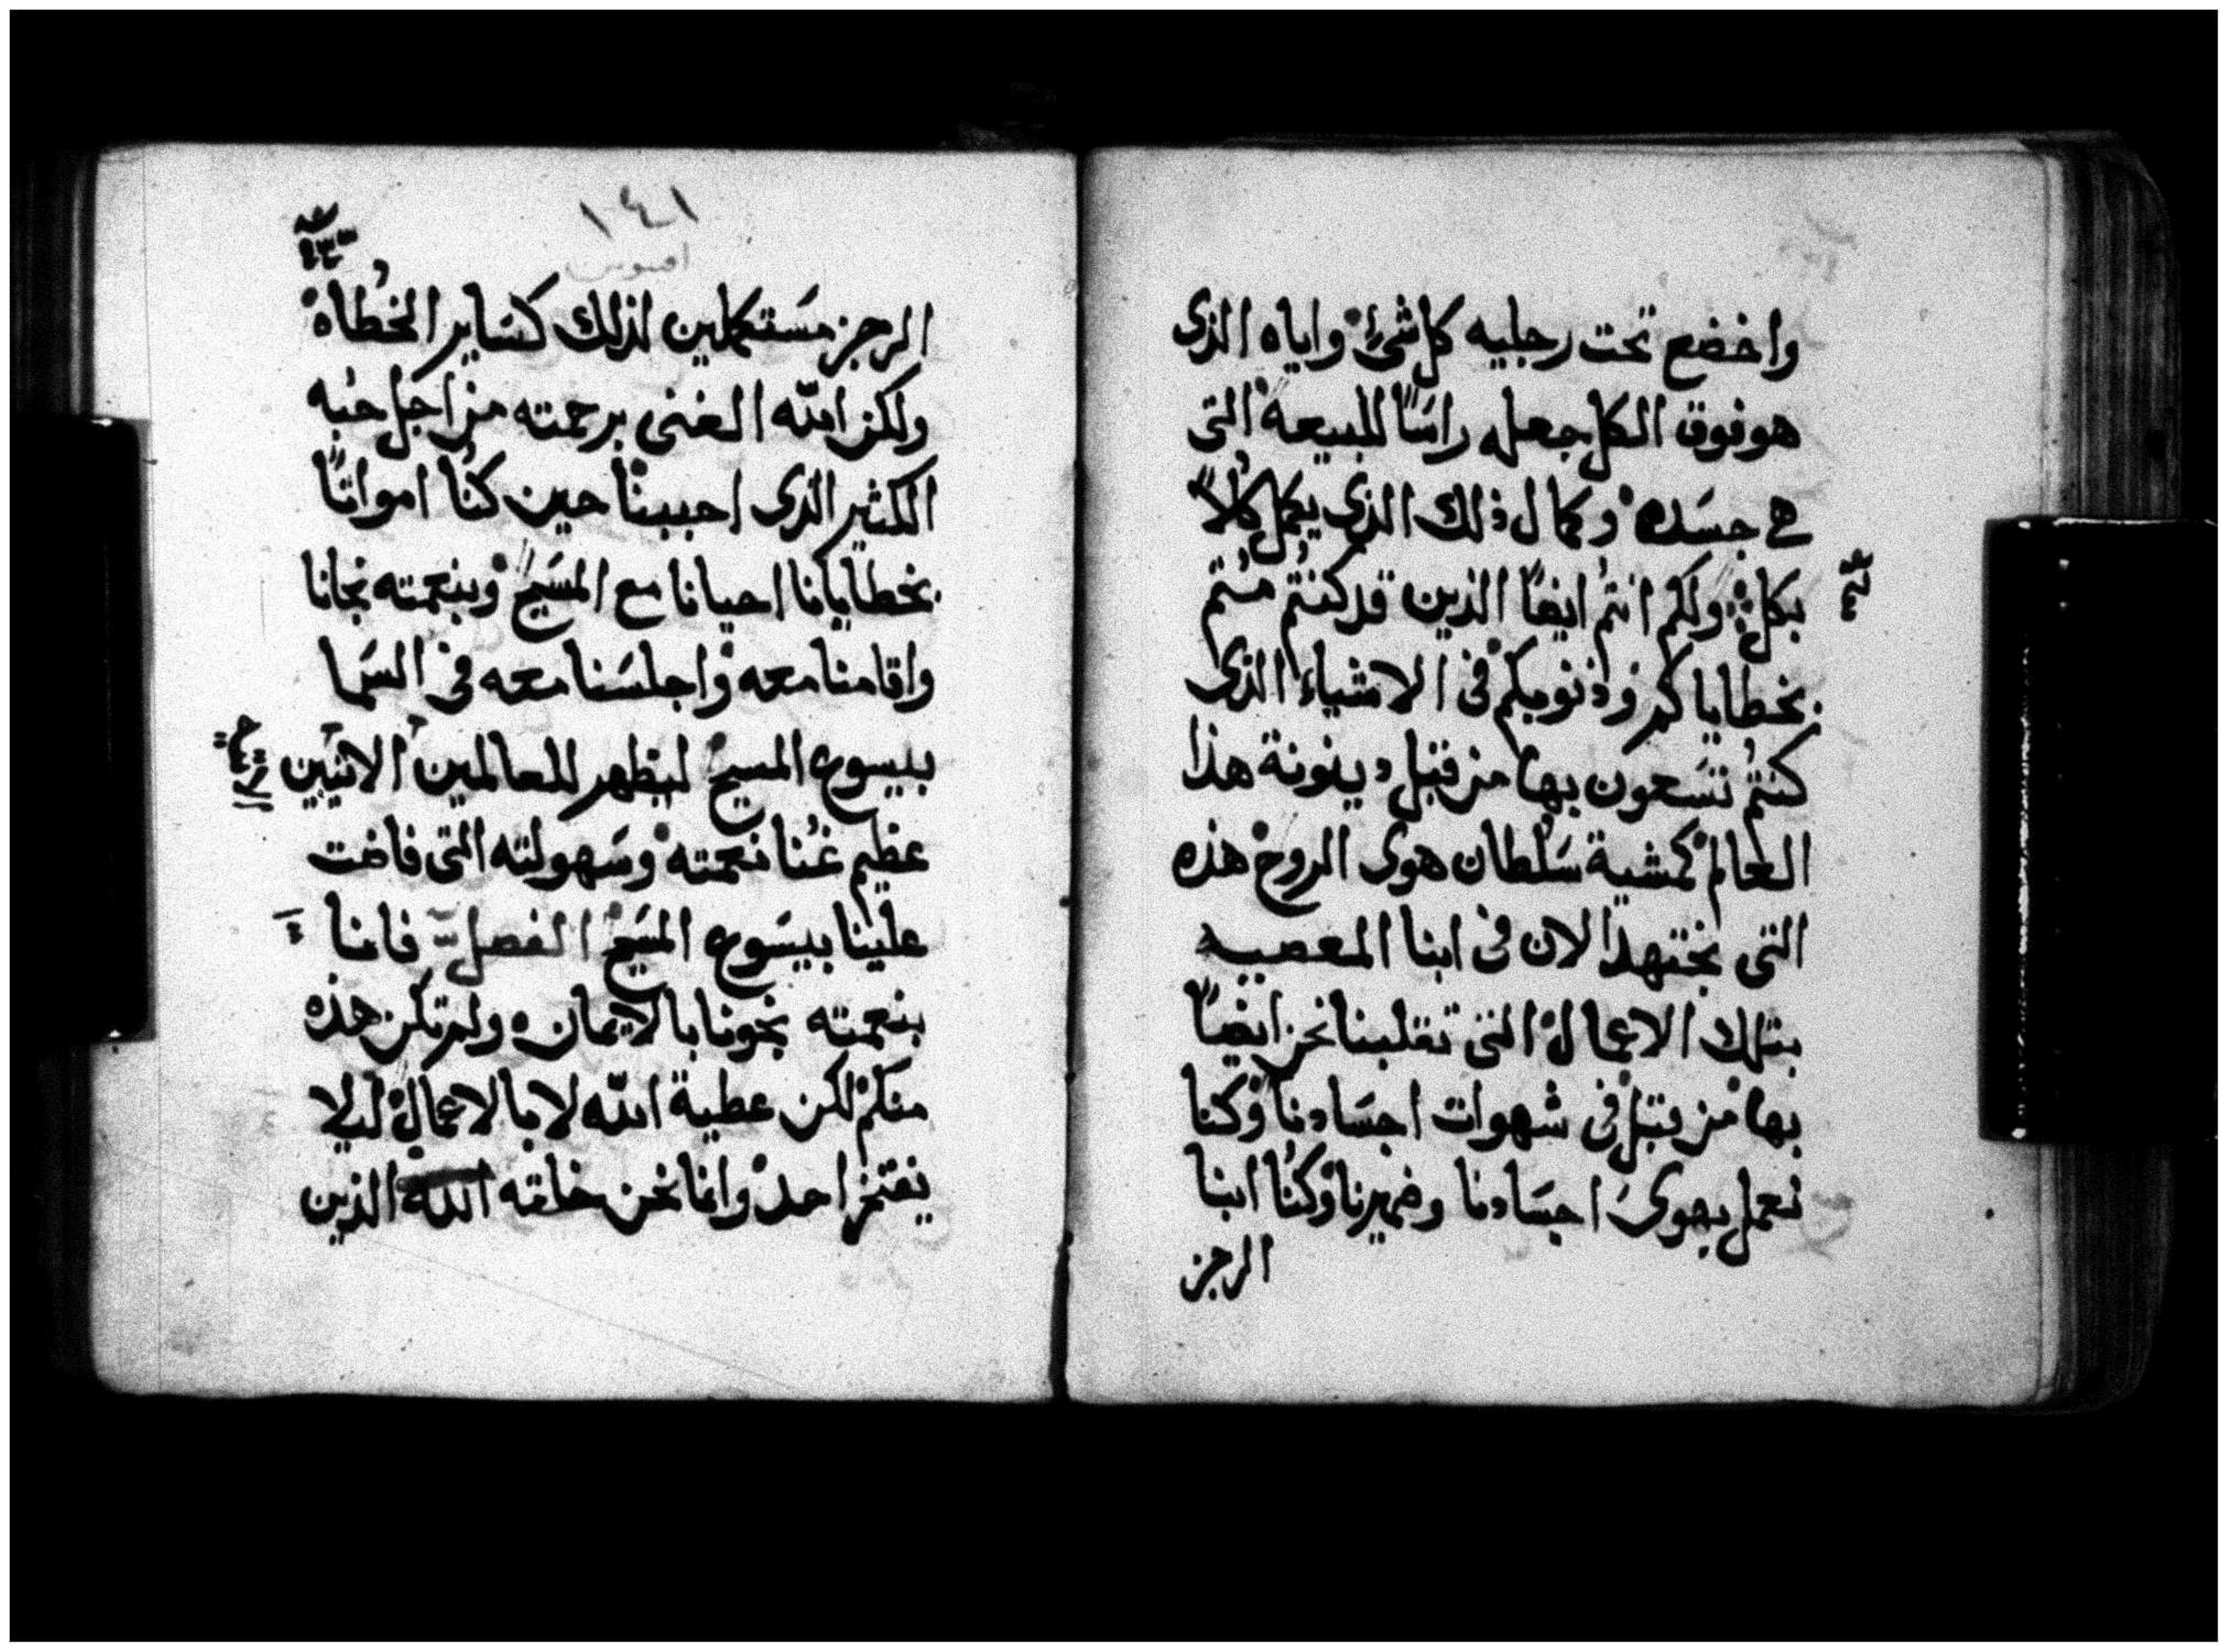 واخضع تحت رجليه كل شئ واياه الذى
هو فوق الكل جعله راسًا للبيعة التى
هى جسَده وكمال ذلك الذى يكمل كلاً
بكل ولكم انتُم ايضًا الذين قد كنتُم مُتم
بخطاياكم وذنوبكم فى الاشياء الذى
كنتُم تسَعون بها من قبل دينونة هذا
العالم كمشية سَلُطان هوى الروح هذه
التى تجتهد الان فى ابنا المعصيه
بتلك الاعمال التى تقلبنا نحن ايضًا
بها من قبل فى شهوات اجسَادنا وكنا
نعمل بهوىَ اجسَادنا وضميرنا وكنُا ابنا
الرجز
١٤١
الرجز مسَتكملين لذلك كسَاير الخُطاه
ولكن الله الغنى برحمته من اجل حبُه
الكثير الذى احببنا حين كنُا امواتًا
بخطايانا احيانا مع المسَيح وبنعمته نجانا
واقامنا معه واجلسَنا معه فى السَما
بيسوع المسيح ليظهر للعالمين الاتيين
عظيم غنُا نعمته وسَهولته التى فاضت
علينا بيسَوع المسَيح الفصل فاننا
بنعمته نجونا بالايمان ولم تكن هذه
منكم لكن عطية الله لا بالاعمال ليلا
يفتخر احد وانما نحن خلقته الله الذين